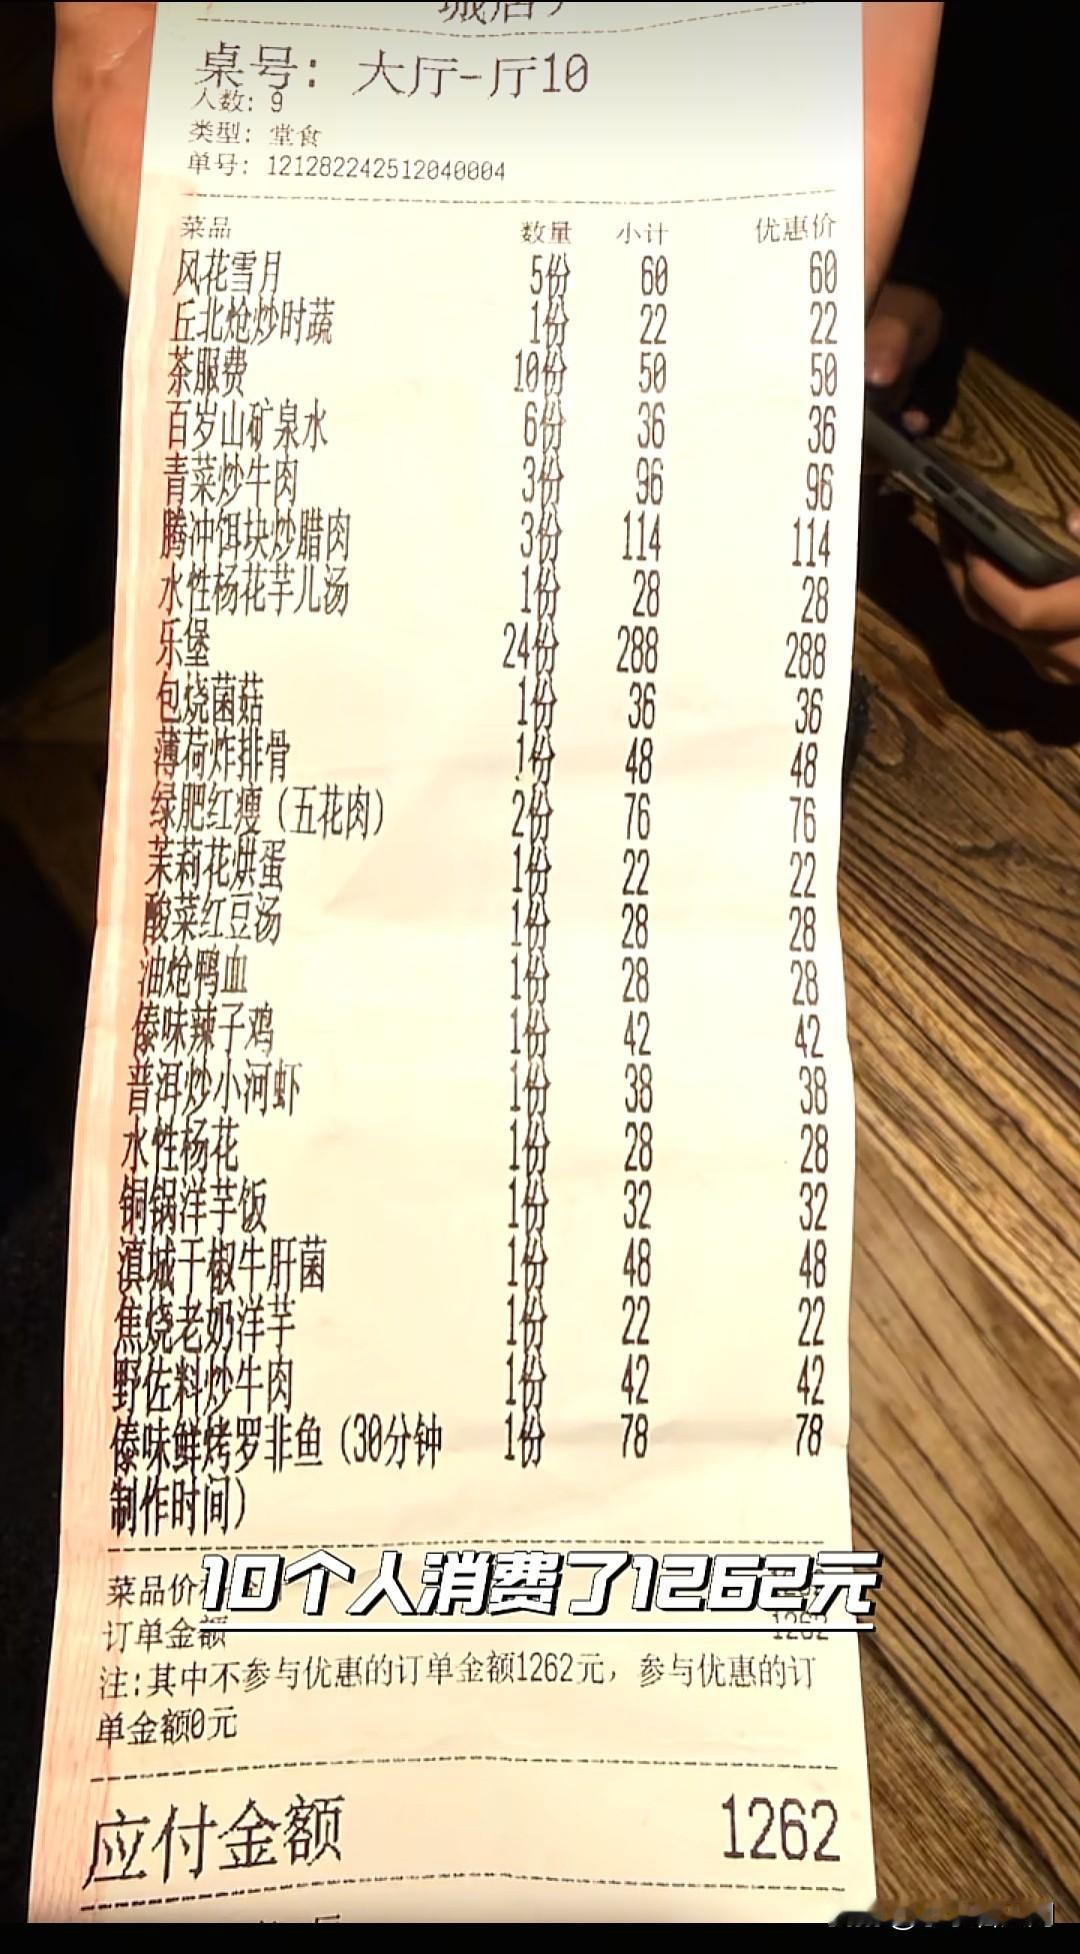 桌号: 大厅-厅10
人数: 9
类型: 堂食
单号: 121282242512040004
菜品 数量 小计 优惠价
风花雪月 5份 60 60
丘北炝炒时蔬 1份 22 22
茶服费 10份 50 50
百岁山矿泉水 6份 36 36
青菜炒牛肉 3份 96 96
腾冲饵块炒腊肉 3份 114 114
水性杨花芋儿汤 1份 28 28
乐堡 24份 288 288
包烧菌菇 1份 36 36
薄荷炸排骨 1份 48 48
绿肥红瘦（五花肉） 2份 76 76
茉莉花烘蛋 1份 22 22
酸菜红豆汤 1份 28 28
油炝鸭血 1份 28 28
傣味辣子鸡 1份 42 42
普洱炒小河虾 1份 38 38
水性杨花 1份 28 28
铜锅洋芋饭 1份 32 32
滇城干椒牛肝菌 1份 48 48
焦烧老奶洋芋 1份 22 22
野佐料炒牛肉 1份 42 42
傣味鲜烤罗非鱼（30分钟 1份 78 78
制作时间）
10个人消费了1262元
菜品价
订单金额 1262
注:其中不参与优惠的订单金额1262元，参与优惠的订
单金额0元
应付金额 1262